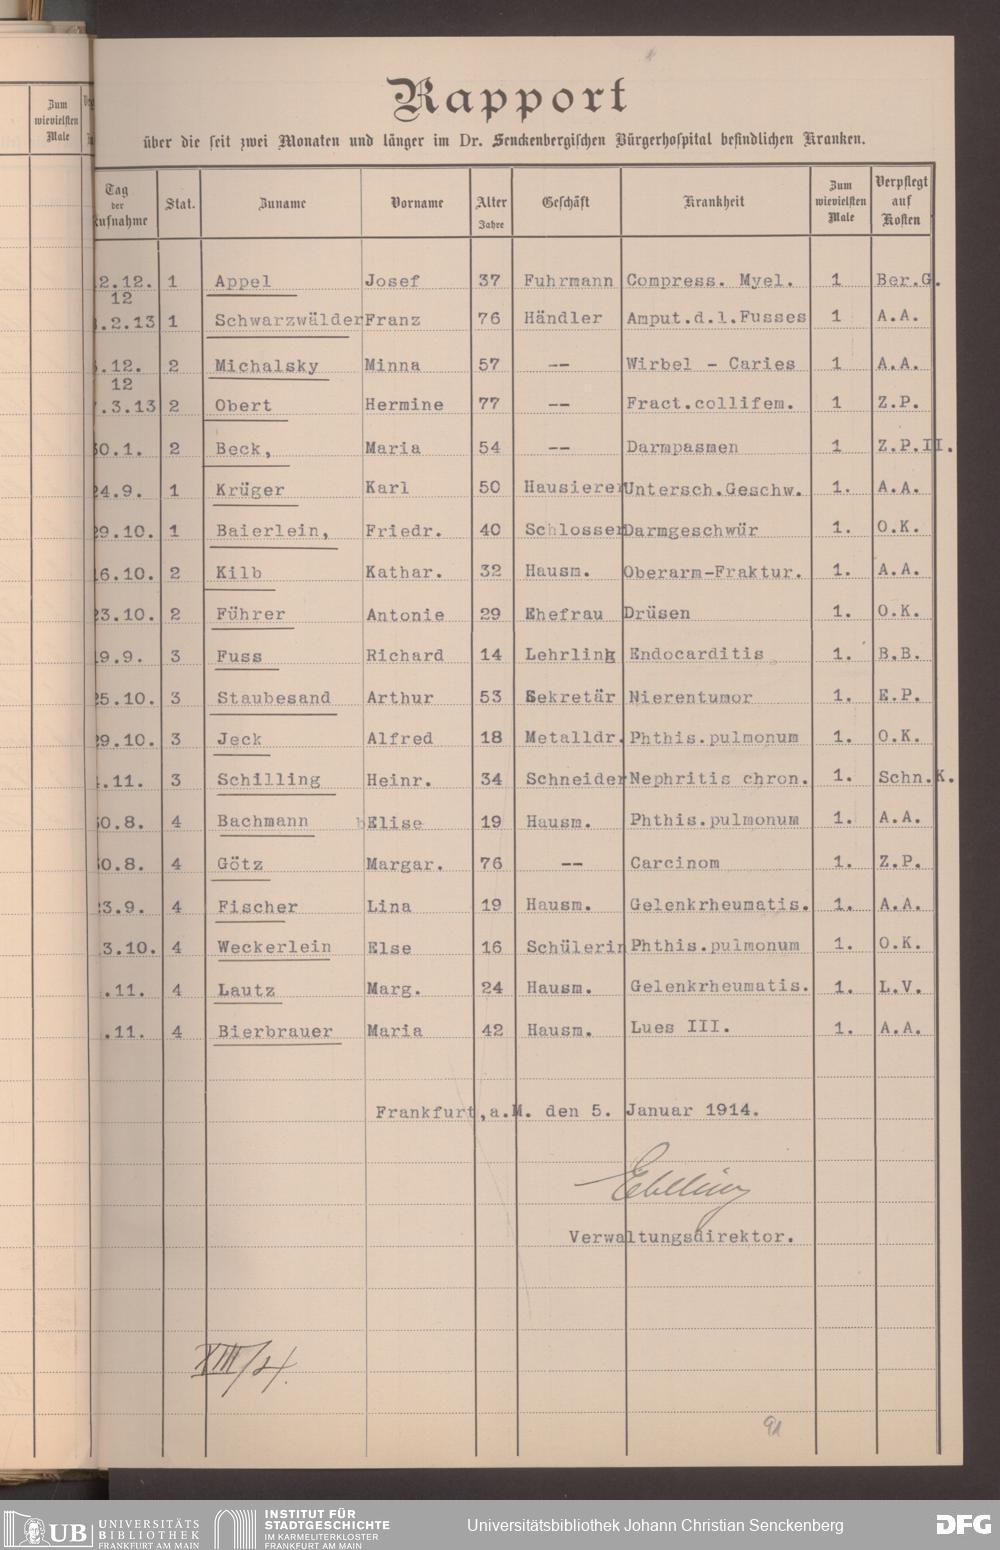 Zum
wievielsten
Male
Rapport
über die seit zwei Monaten und länger im Dr. Senckenbergischen Bürgerhospital befindlichen Kranken.
Tag der Aufnahme Stat. Zuname Vorname Alter Jahre Geschäft Krankheit Zum wievielsten Male Verpflegt auf Kosten
2.12.12 1 Appel Josef 37 Fuhrmann Compress. Myel. 1 Ber.G.
.2.13 1 Schwarzwälder Franz 76 Händler Amput.d.l.Fusses 1 A.A.
.12.12 2 Michalsky Minna 57 -- Wirbel - Caries 1 A.A.
.3.13 2 Obert Hermine 77 -- Fract.collifem. 1 Z.P.
30.1. 2 Beck, Maria 54 -- Darmpasmen 1 Z.P.II.
24.9. 1 Krüger Karl 50 Hausierer Untersch.Geschw. 1. A.A.
29.10. 1 Baierlein, Friedr. 40 Schlosser Darmgeschwür 1. O.K.
16.10. 2 Kilb Kathar. 32 Hausm. Oberarm-Fraktur. 1. A.A.
23.10. 2 Führer Antonie 29 Ehefrau Drüsen 1. O.K.
19.9. 3 Fuss Richard 14 Lehrling Endocarditis 1. B.B.
25.10. 3 Staubesand Arthur 53 Sekretär Nierentumor 1. E.P.
29.10. 3 Jeck Alfred 18 Metalldr. Phthis.pulmonum 1. O.K.
.11. 3 Schilling Heinr. 34 Schneider Nephritis chron. 1. Schn.K.
30.8. 4 Bachmann Elise 19 Hausm. Phthis.pulmonum 1. A.A.
30.8. 4 Götz Margar. 76 -- Carcinom 1. Z.P.
23.9. 4 Fischer Lina 19 Hausm. Gelenkrheumatis. 1. A.A.
13.10. 4 Weckerlein Else 16 Schülerin Phthis.pulmonum 1. O.K.
.11. 4 Lautz Marg. 24 Hausm. Gelenkrheumatis. 1. L.V.
.11. 4 Bierbrauer Maria 42 Hausm. Lues III. 1. A.A.
Frankfurt,a.M. den 5. Januar 1914.
Ebeling
Verwaltungsdirektor.
XIII/4.
91
UB UNIVERSITÄTS BIBLIOTHEK FRANKFURT AM MAIN
INSTITUT FÜR STADTGESCHICHTE IM KARMELITERKLOSTER FRANKFURT AM MAIN
Universitätsbibliothek Johann Christian Senckenberg
DFG